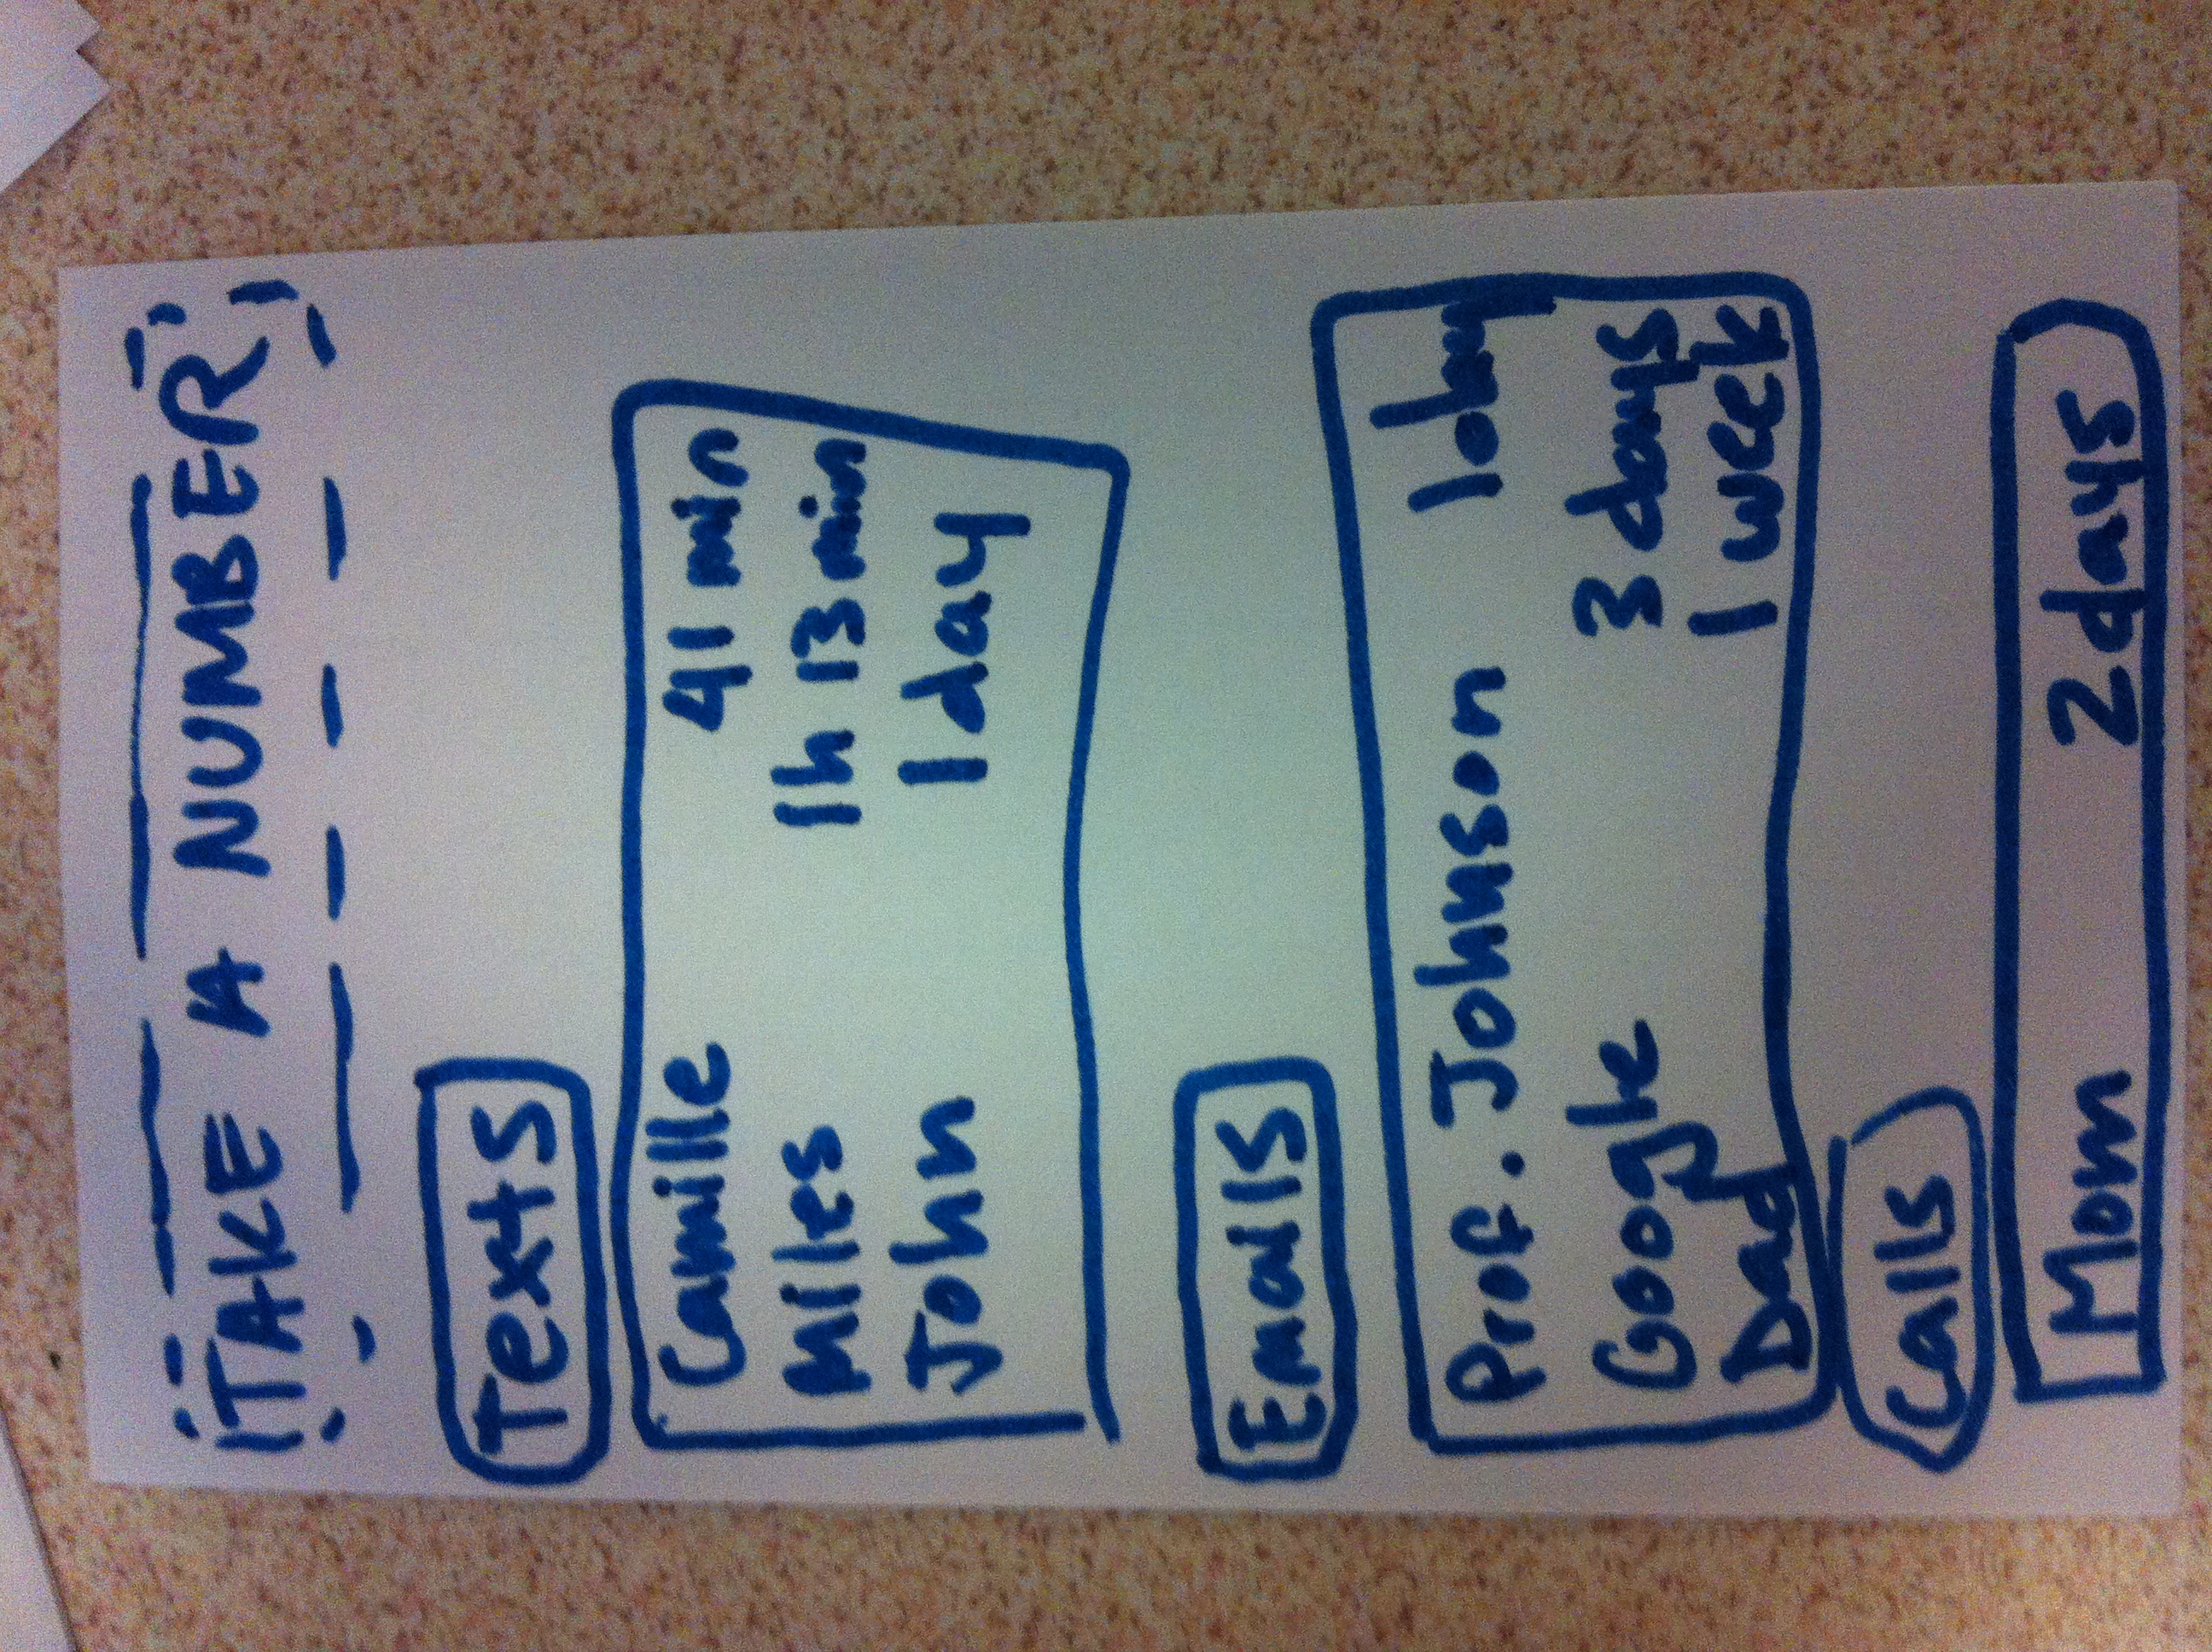 TAKE A NUMBER
Texts
Camille 41 min
Miles 1h 13 min
John 1 day
Emails
Prof. Johnson 1 day
Google 3 days
Dad 1 week
Calls
Mom 2 days